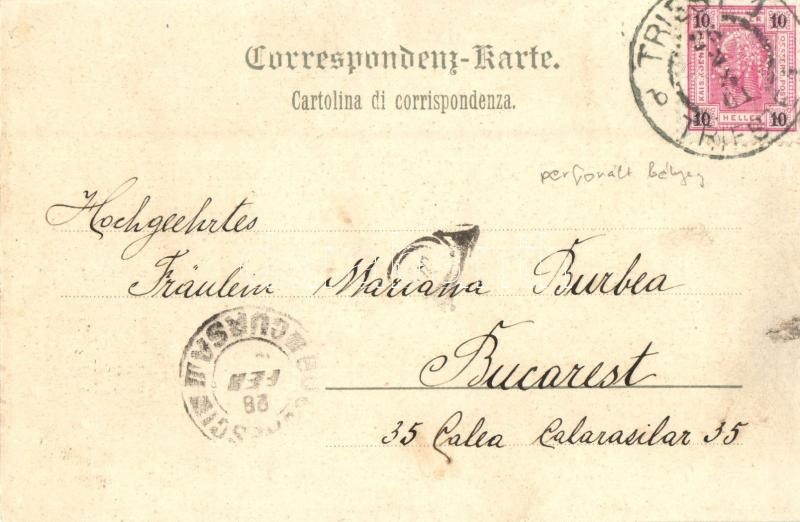 Correspondenz-Karte.
Cartolina di corrispondenza.
10 10
HELLER
10 10
TRIEST
TRIEST
perforált bélyeg
Hochgeehrtes
Fräulein Mariana Burbea
Bucarest
35 Calea Calarasilar 35
FEB
28